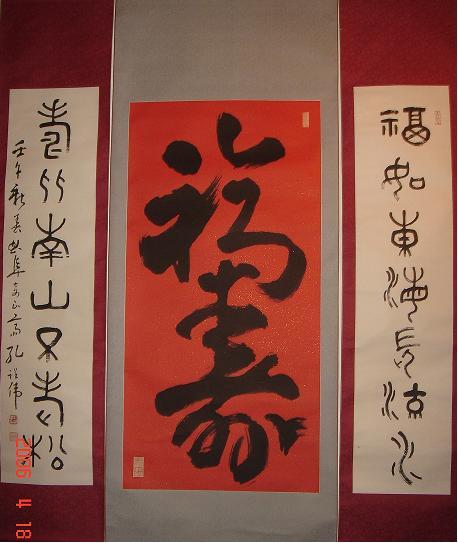 福如東海長流水
福壽
壽比南山不老松
壬午新春曲阜孔伟
2006 4 18